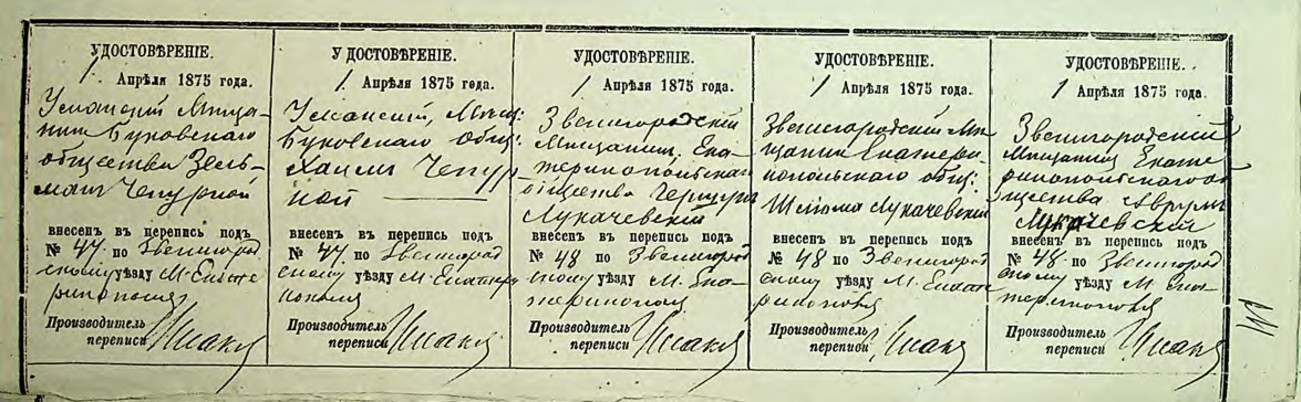 УДОСТОВѢРЕНІЕ.
1 Апрѣля 1875 года.
Уманскій Мѣща-
нинъ Буковскаго
общества Зель-
манъ Чепурной
внесенъ въ перепись подъ
№ 47. по Звенигород
скому уѣзду М. Екате
ринополя
Производитель
переписи
УДОСТОВѢРЕНІЕ.
1 Апрѣля 1875 года.
Уманскій, Мѣщ:
Буковскаго общ:
Хаимъ Чепур
ной
внесенъ въ перепись подъ
№ 47. по Звенигород
скому уѣзду М. Екатери
нополя
Производитель
переписи
УДОСТОВѢРЕНІЕ.
1 Апрѣля 1875 года.
Звенигородскій
Мѣщанинъ, Ека-
теринопольскаго
общества
Лукачевскій
внесенъ въ перепись подъ
№ 48 по Звенигород
скому уѣзду М. Ека-
теринополя
Производитель
переписи
УДОСТОВѢРЕНІЕ.
1 Апрѣля 1875 года.
Звенигородскій Мѣ
щанинъ Екатери-
нопольскаго общ:
Шліома Лукачевскій
внесенъ въ перепись подъ
№ 48 по Звенигород
скому уѣзду М. Екате
ринополя
Производитель
переписи
УДОСТОВѢРЕНІЕ.
1 Апрѣля 1875 года.
Звенигородскій
Мѣщанинъ Екате
ринопольскаго о
бщества Аврумъ
Лукачевскій
внесенъ въ перепись подъ
№ 48. по Звенигород
скому уѣзду М. Ека-
теринополя
Производитель
переписи